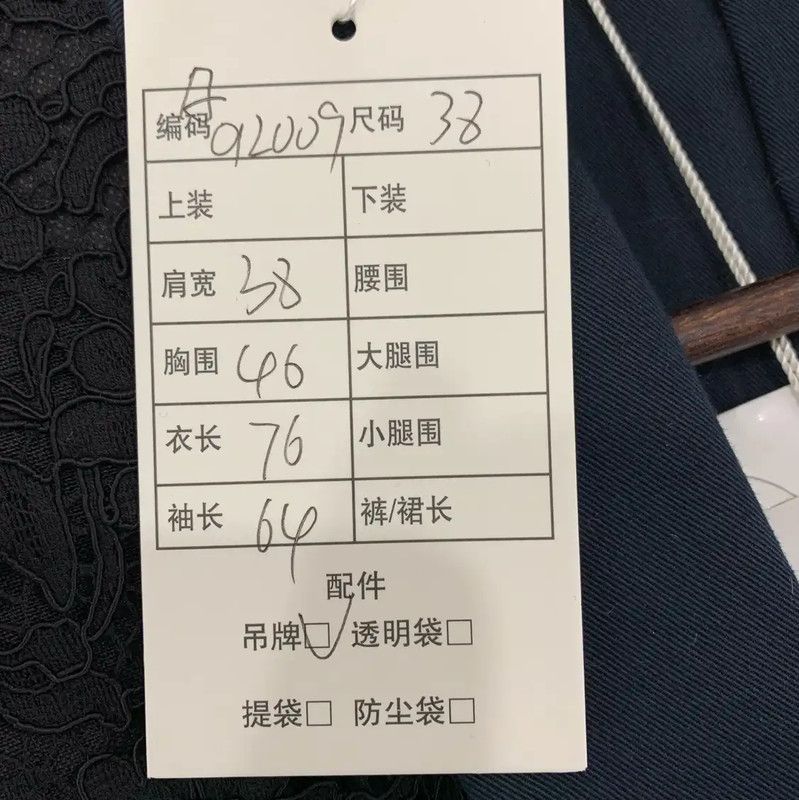 编码 A 92009 尺码 38
上装 下装
肩宽 38 腰围
胸围 46 大腿围
衣长 76 小腿围
袖长 64 裤/裙长
配件
吊牌☑ 透明袋□
提袋□ 防尘袋□